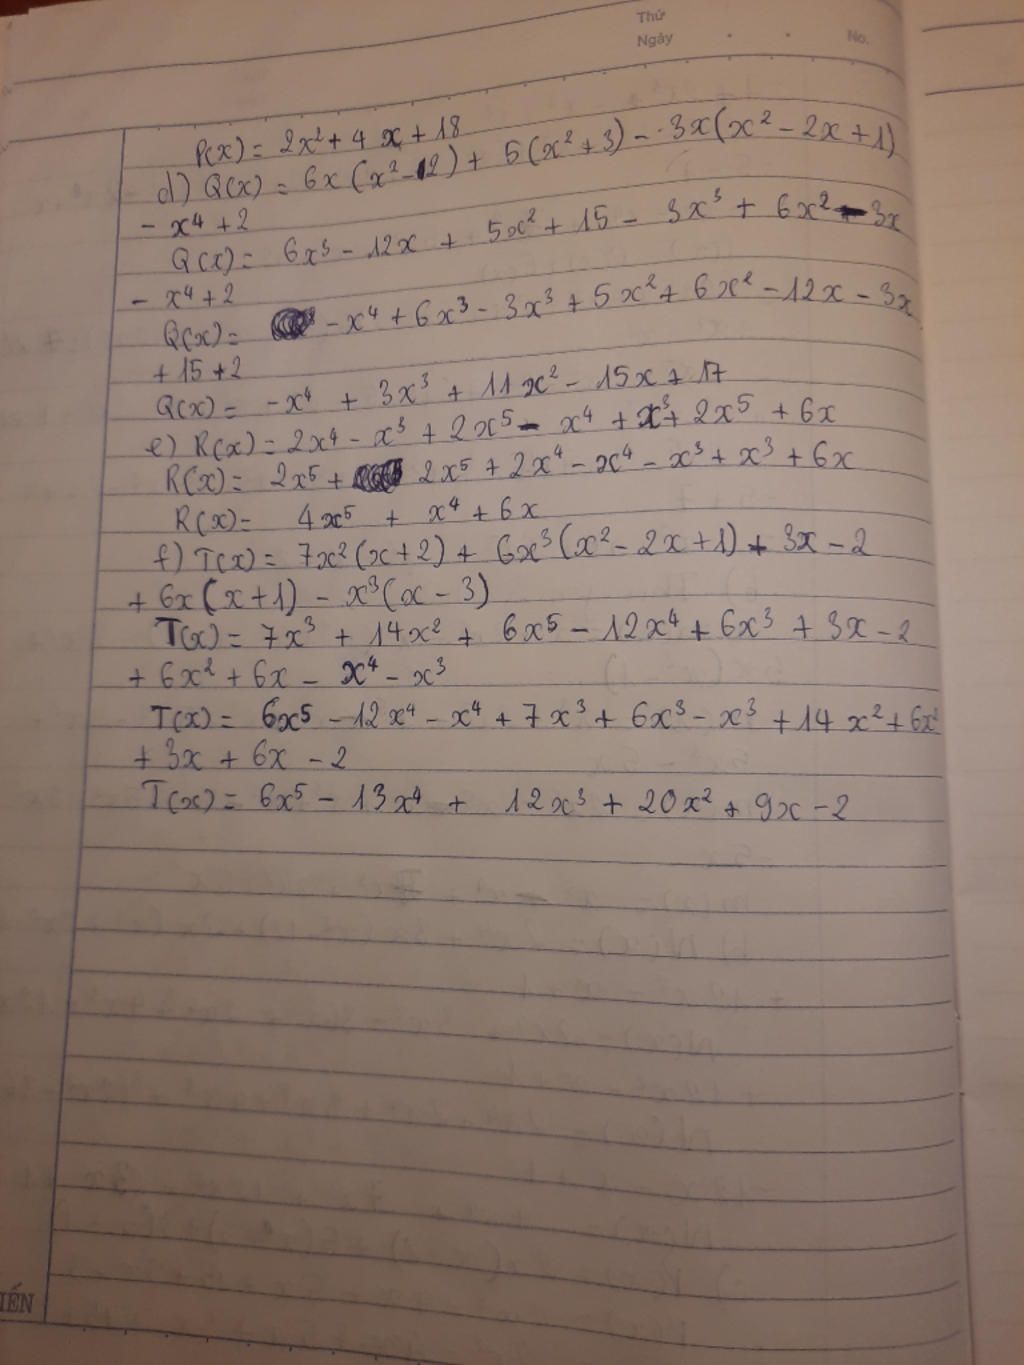 Thứ
Ngày No.
P(x) = 2x² + 4x + 18
d) Q(x) = 6x(x² - 2) + 5(x² + 3) - 3x(x² - 2x + 1)
- x⁴ + 2
Q(x) = 6x³ - 12x + 5x² + 15 - 3x³ + 6x² - 3x
- x⁴ + 2
Q(x) = - x⁴ + 6x³ - 3x³ + 5x² + 6x² - 12x - 3x
+ 15 + 2
Q(x) = -x⁴ + 3x³ + 11x² - 15x + 17
e) R(x) = 2x⁴ - x³ + 2x⁵ - x⁴ + x³ + 2x⁵ + 6x
R(x) = 2x⁵ + 2x⁵ + 2x⁴ - x⁴ - x³ + x³ + 6x
R(x) = 4x⁵ + x⁴ + 6x
f) T(x) = 7x²(x + 2) + 6x³(x² - 2x + 1) + 3x - 2
+ 6x(x + 1) - x³(x - 3)
T(x) = 7x³ + 14x² + 6x⁵ - 12x⁴ + 6x³ + 3x - 2
+ 6x² + 6x - x⁴ - x³
T(x) = 6x⁵ - 12x⁴ - x⁴ + 7x³ + 6x³ - x³ + 14x² + 6x²
+ 3x + 6x - 2
T(x) = 6x⁵ - 13x⁴ + 12x³ + 20x² + 9x - 2
IẾN